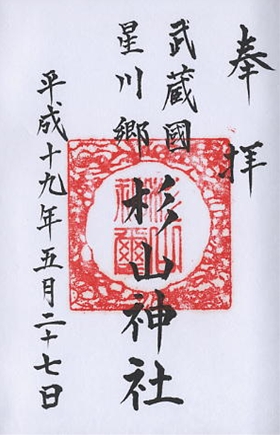 奉拝
武蔵國
星川郷
杉山神社
平成十九年五月二十七日